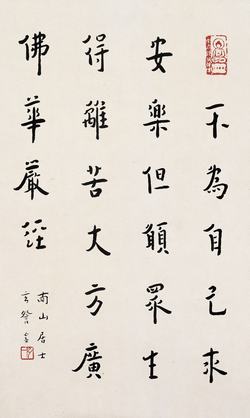 不為自己求
安樂但願眾生
得離苦大方廣
佛華嚴經
尚山居士
玄督書